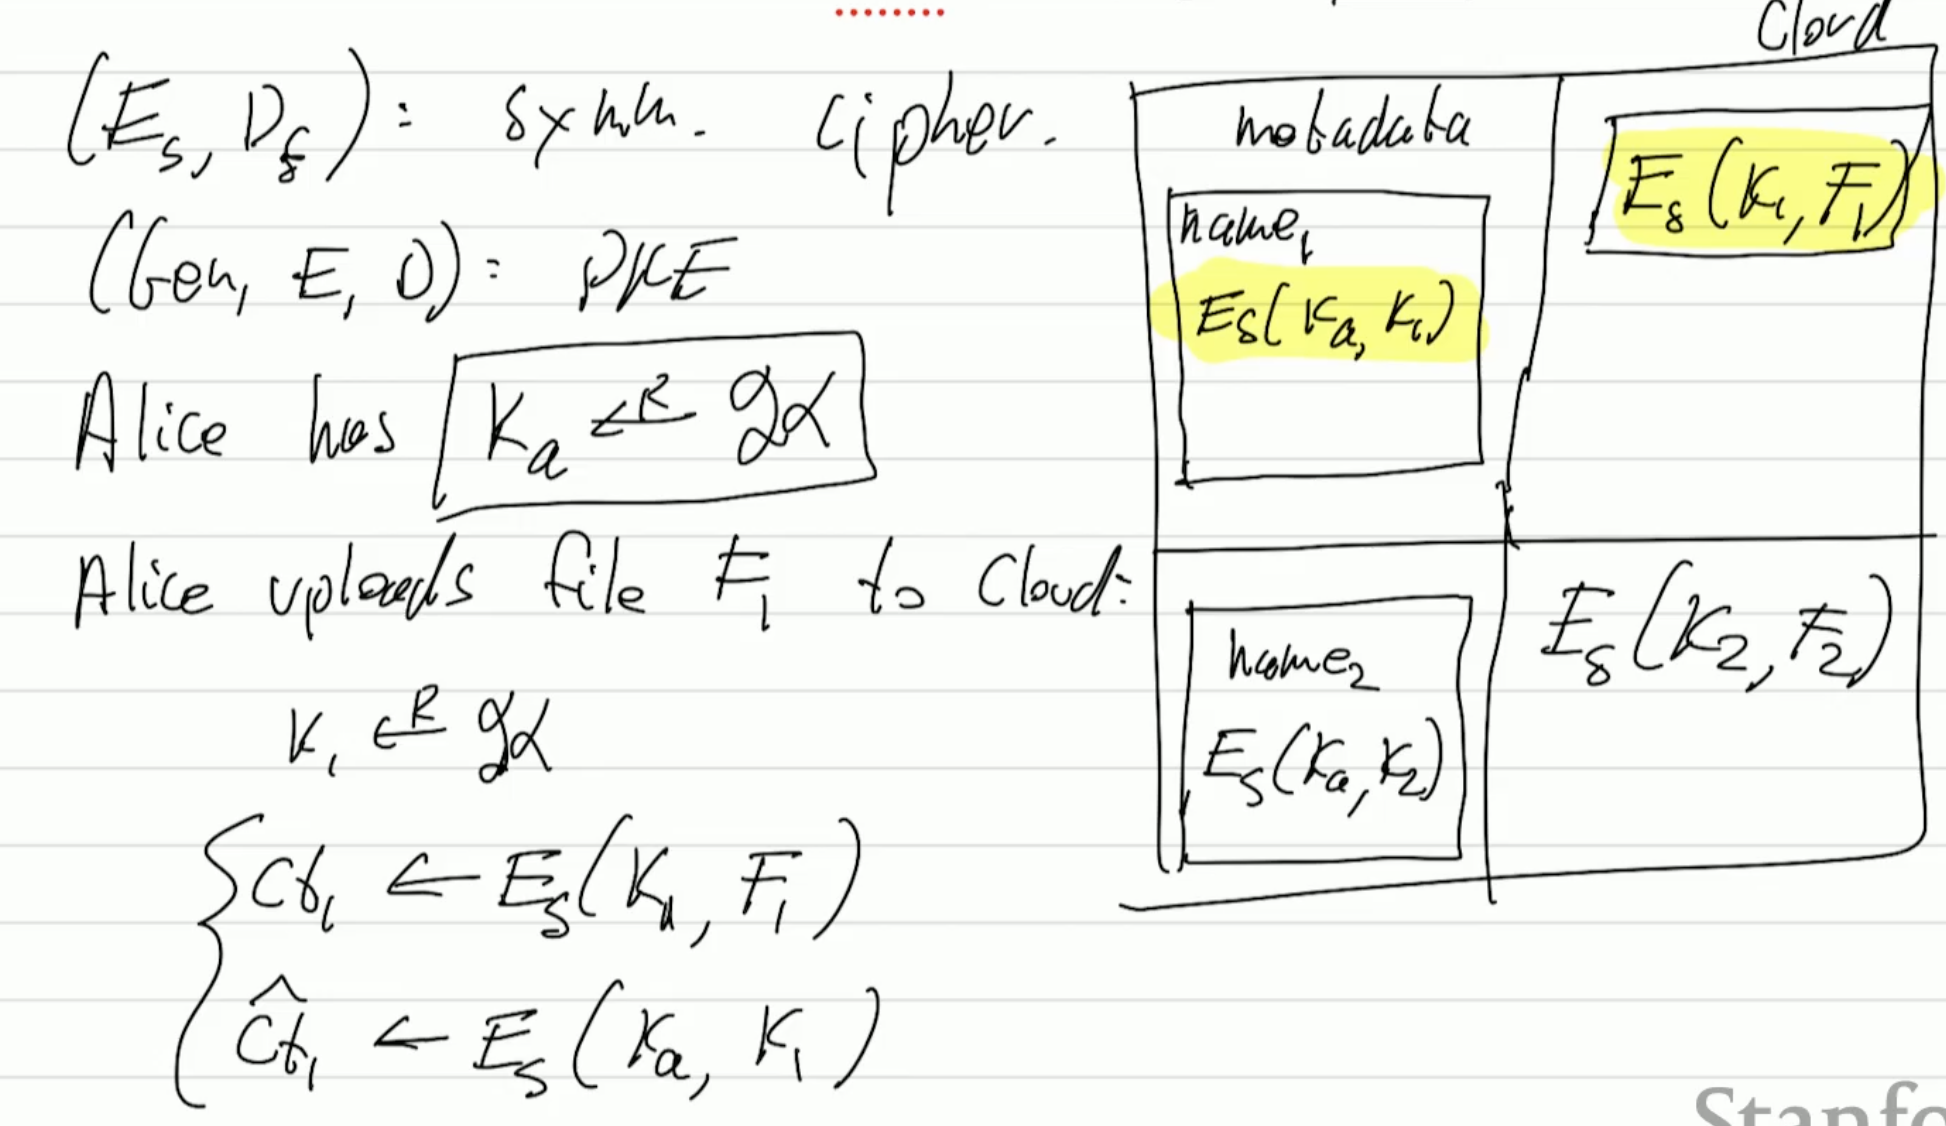 Cloud
(E_s, D_s): symm. cipher.
(Gen, E, D): PKE
Alice has K_a ←R 𝒦
Alice uploads file F_1 to Cloud:
K_1 ←R 𝒦
ct_1 ← E_s(K_1, F_1)
ĉt_1 ← E_s(K_a, K_1)
metadata
name_1
E_s(K_a, K_1)
E_s(K_1, F_1)
name_2
E_s(K_a, K_2)
E_s(K_2, F_2)